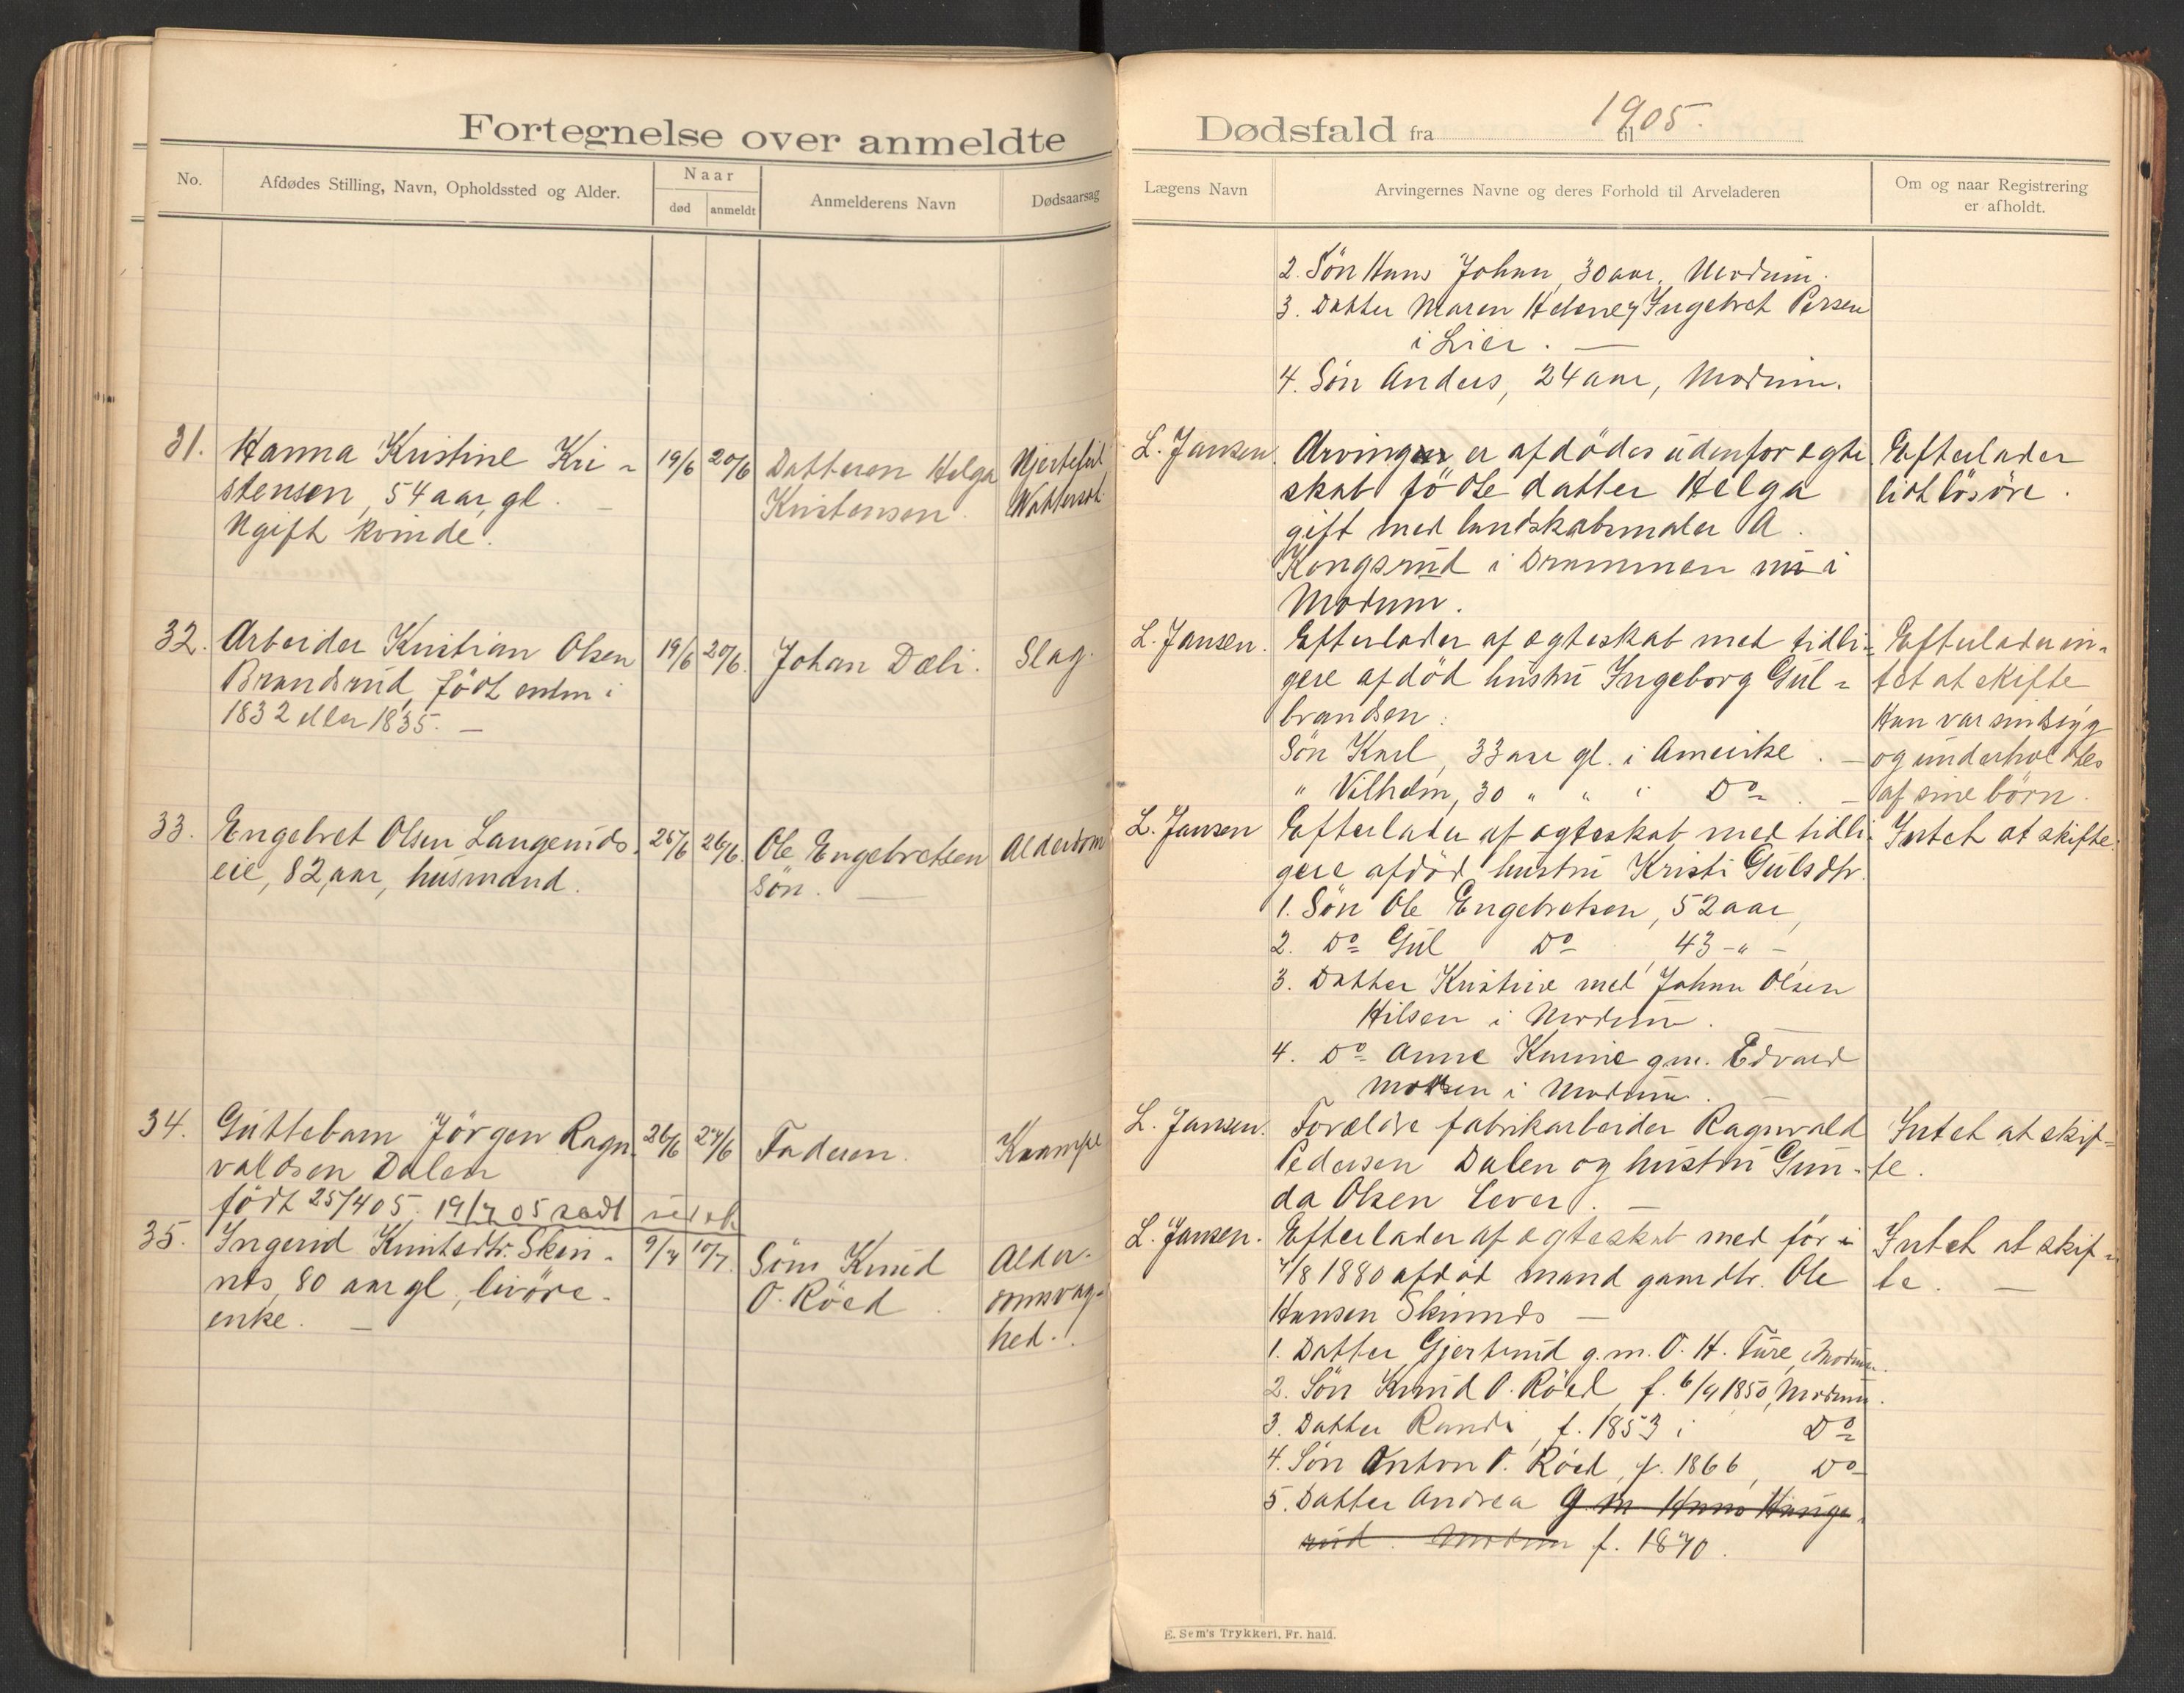 Fortegnelse over anmeldte
No.
Afdødes Stilling, Navn, Opholdssted og Alder.
Naar
død
anmeldt
Anmelderens Navn
Dødsaarsag
31.
Hanna Kristine Kri-
stensen, 54 aar gl.
Ugift kvinde.
19/6
20/6
Datteren Helga
Kristensen.
Hjertefeil
Wattersot.
32.
Arbeider Kristian Olsen
Brandsrud, født enten i
1832 eller 1835. —
19/6
20/6.
Johan Dæli.
Slag.
33.
Engebret Olsen Langeruds-
eie, 82 aar, husmand.
25/6
26/6.
Ole Engebretsen
Søn. —
Alderdom
34.
Guttebarn Jörgen Ragn-
valdsen Dalen
født 25/4 05. 19/7 05 sædt
26/6
27/6
Faderen.
Krampe
35.
Ingerid Knutsdtr. Skin-
nes, 80 aar gl, livöre-
enke. —
9/7
10/7.
Søm Knud
O. Röed.
Alder-
omsvag-
hed.
Dødsfald fra til
1905.
Lægens Navn
Arvingernes Navne og deres Forhold til Arveladeren
Om og naar Registrering
er afholdt.
2. Søn Hans Johan, 30 aar, Modum.
3. Datter Maren Helene g. Ingebret Persen
i Lier. —
4. Søn Anders, 24 aar, Modum.
L. Jansen.
Arvingen er afdödes udenfor egte
skab födte datter Helga
gift med landskabsmaler A.
Kongsrud i Drammen nu i
Modum.
Efterlader
lidt lösöre.
L. Jansen.
Efterlader af egteskab med tidli-
gere afdöd hustru Ingeborg Gul-
brandsen:
Søn Karl, 33 aar gl. i Amerike. —
" Vilhelm, 30 " " i Do. —
Efterlader in-
tet at skifte
Han var sindsyg
og underholdtes
af sine börn.
L. Jansen
Efterlader af egteskab med tidli-
gere afdöd hustru Kristi Gulsdtr.
1. Søn Ole Engebretsen, 52 aar,
2. Do Gul Do, 43 - " -
3. Datter Kristine med Johan Olsen
Hilsen i Modum.
4. Do Anne Karine gm. Edvard
i Modum.
Intet at skifte.
L. Jansen.
Forældre fabrikarbeider Ragnvald
Pedersen Dalen og hustru Gun-
da Olsen lever. —
Intet at skif-
te.
L. Jansen.
Efterlader af egteskab med för i
7/8 1880 afdöd mand gamdbr. Ole
Hansen Skinnes —
1. Datter Gjertrud g.m. O. H. Ture, Modum.
2. Søn Knud O. Röed f. 6/9 1850, Modum.
3. Datter Randi, f. 1853 i Do
4. Søn Anton O. Röed, f. 1866, Do
5. Datter Andrea g. m. Hans Hauge
rud. Modum f. 1870.
Intet at skif-
te. —
E. Sem's Trykkeri, Fr. hald.